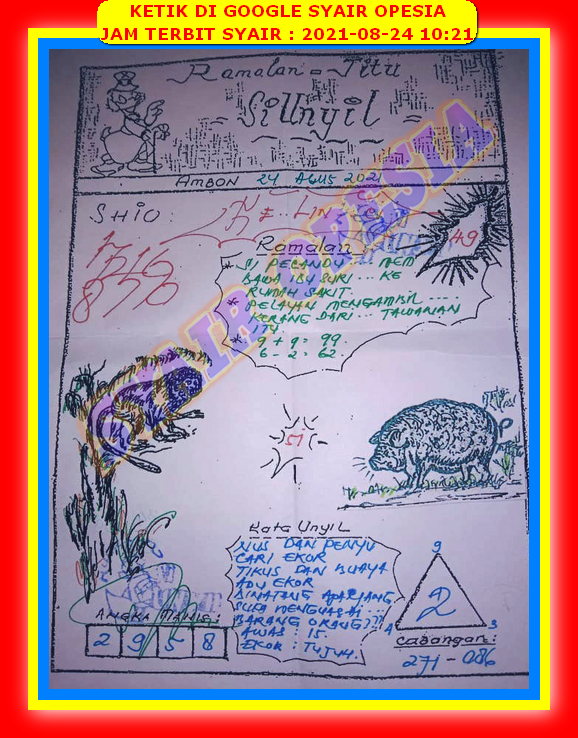 KETIK DI GOOGLE SYAIR OPESIA
JAM TERBIT SYAIR : 2021-08-24 10:21
Ramalan = Jitu
= SiUnyil =
AMBON 24 AGUS 2021
SHIO :
49
Ramalan
* SI PELANDU ... MEM
BAWA IBU SURI ... KE
RUMAH SAKIT.
* PELAYAN MENGAMBIL ....
KERANG DARI ... TAWANAN
ITU.
* 9 + 9 = 99.
6 - 2 = 62.
SYAIR OPESIA
51
Kata Unyil
NUS DAN PENYU
CARI EKOR
TIKUS DAN BUAYA
ADU EKOR
BINATANG APA YANG
SUKA MENGUASAI ...
BARANG ORANG ???
AWAS : 15.
EKOR : TUJUH.
9
2
4 3
ANGKA MANIS :
2 9 5 8
Cabangan :
271 - 086